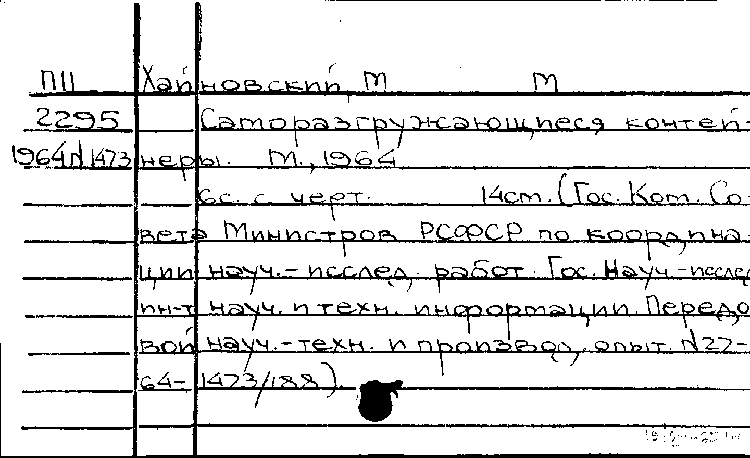 ПII Хайновский, М М
2295 Саморазгружающиеся контей-
1964/N1473 неры. М., 1964
6с. с черт. 14см. (Гос. Ком. Со-
вета Министров РСФСР по координа-
ции науч.-исслед. работ. Гос. Науч.-исслед
ин-т науч. и техн. информации. Передо
вой науч.-техн. и производ. опыт. N22-
64-1473/188).